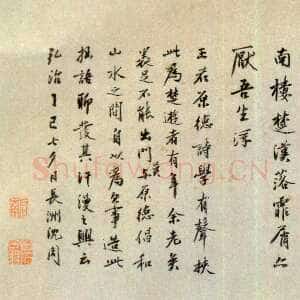 南樓楚漢落霏屑亦
厭吾生浮
王君原德詩學有聲挾
此為楚遊者有年余老矣
裹足不能出門與原德倡和
山水之間自以為欠事造此
拙語聊發其汗漫之興云
弘治丁巳七夕日長洲沈周